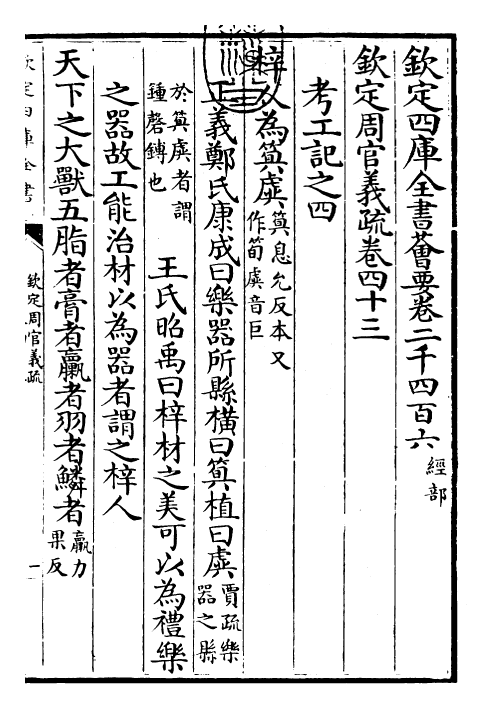 欽定四庫全書薈要卷二千四百六 經部
欽定周官義疏卷四十三
考工記之四
梓人為筍虡 筍息允反本又作筍虡音巨
正義鄭氏康成曰樂器所縣橫曰筍植曰虡 賈疏樂器之縣
於筍虡者謂鍾磬鎛也 王氏昭禹曰梓材之美可以為禮樂
之器故工能治材以為器者謂之梓人
天下之大獸五脂者膏者臝者羽者鱗者 臝力果反
欽定四庫全書
欽定周官義疏
一